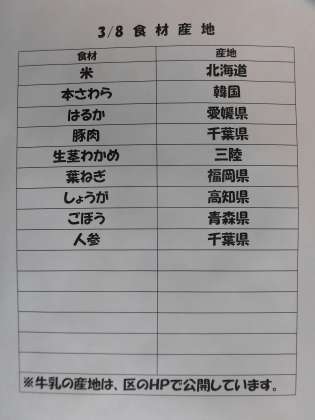 3/8 食材産地
食材 産地
米 北海道
本さわら 韓国
はるか 愛媛県
豚肉 千葉県
生茎わかめ 三陸
葉ねぎ 福岡県
しょうが 高知県
ごぼう 青森県
人参 千葉県
※牛乳の産地は、区のHPで公開しています。